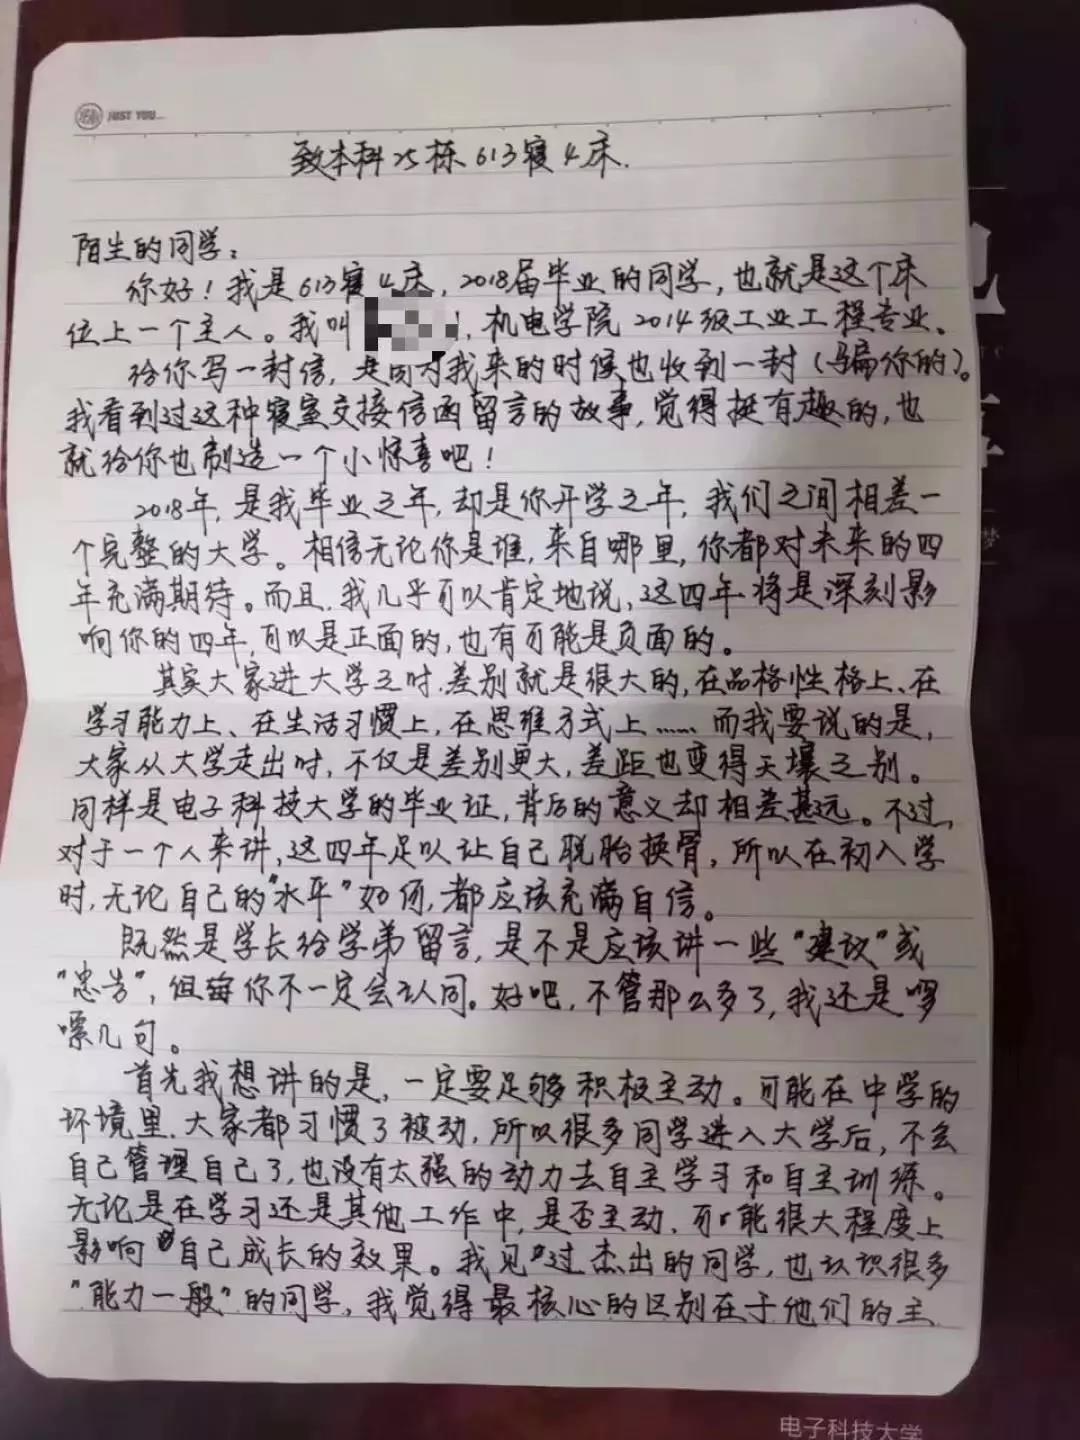 JUST YOU...
致本科25栋613寝4床.
陌生的同学:
你好!我是613寝4床,2018届毕业的同学,也就是这个床
位上一个主人。我叫,机电学院2014级工业工程专业、
给你写一封信,是因为我来的时候也收到一封(骗你的)。
我看到过这种寝室交接信函留言的故事,觉得挺有趣的,也
就给你也制造一个小惊喜吧!
2018年,是我毕业之年,却是你开学之年,我们之间相差一
个完整的大学。相信无论你是谁,来自哪里,你都对未来的四
年充满期待。而且,我几乎可以肯定地说,这四年将是深刻影
响你的四年,可以是正面的,也有可能是负面的。
其实大家进大学之时,差别就是很大的,在品格性格上、在
学习能力上、在生活习惯上,在思维方式上……而我要说的是,
大家从大学走出时,不仅是差别更大,差距也变得天壤之别。
同样是电子科技大学的毕业证,背后的意义却相差甚远。不过,
对于一个人来讲,这四年足以让自己脱胎换骨,所以在初入学
时,无论自己的"水平"如何,都应该充满自信。
既然是学长给学弟留言,是不是应该讲一些"建议"或
"忠告",但每你不一定会认同。好吧,不管那么多了,我还是啰
嗦几句。
首先我想讲的是,一定要足够积极主动。可能在中学的
环境里,大家都习惯了被动,所以很多同学进入大学后,不会
自己管理自己了,也没有太强的动力去自主学习和自主训练。
无论是在学习还是其他工作中,是否主动,可能很大程度上
影响自己成长的效果。我见过杰出的同学,也认识很多
"能力一般"的同学,我觉得最核心的区别在于他们的主
梦
电子科技大学